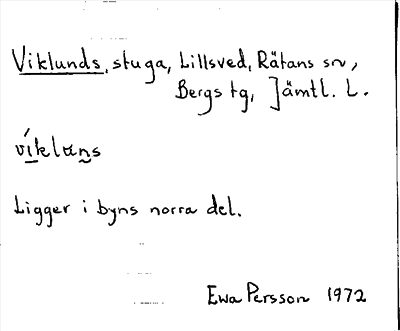 Viklunds, stuga, Lillsved, Rätans sn,
Bergs tg, Jämtl. L.
víklɯn̰s
Ligger i byns norra del.
Ewa Persson 1972